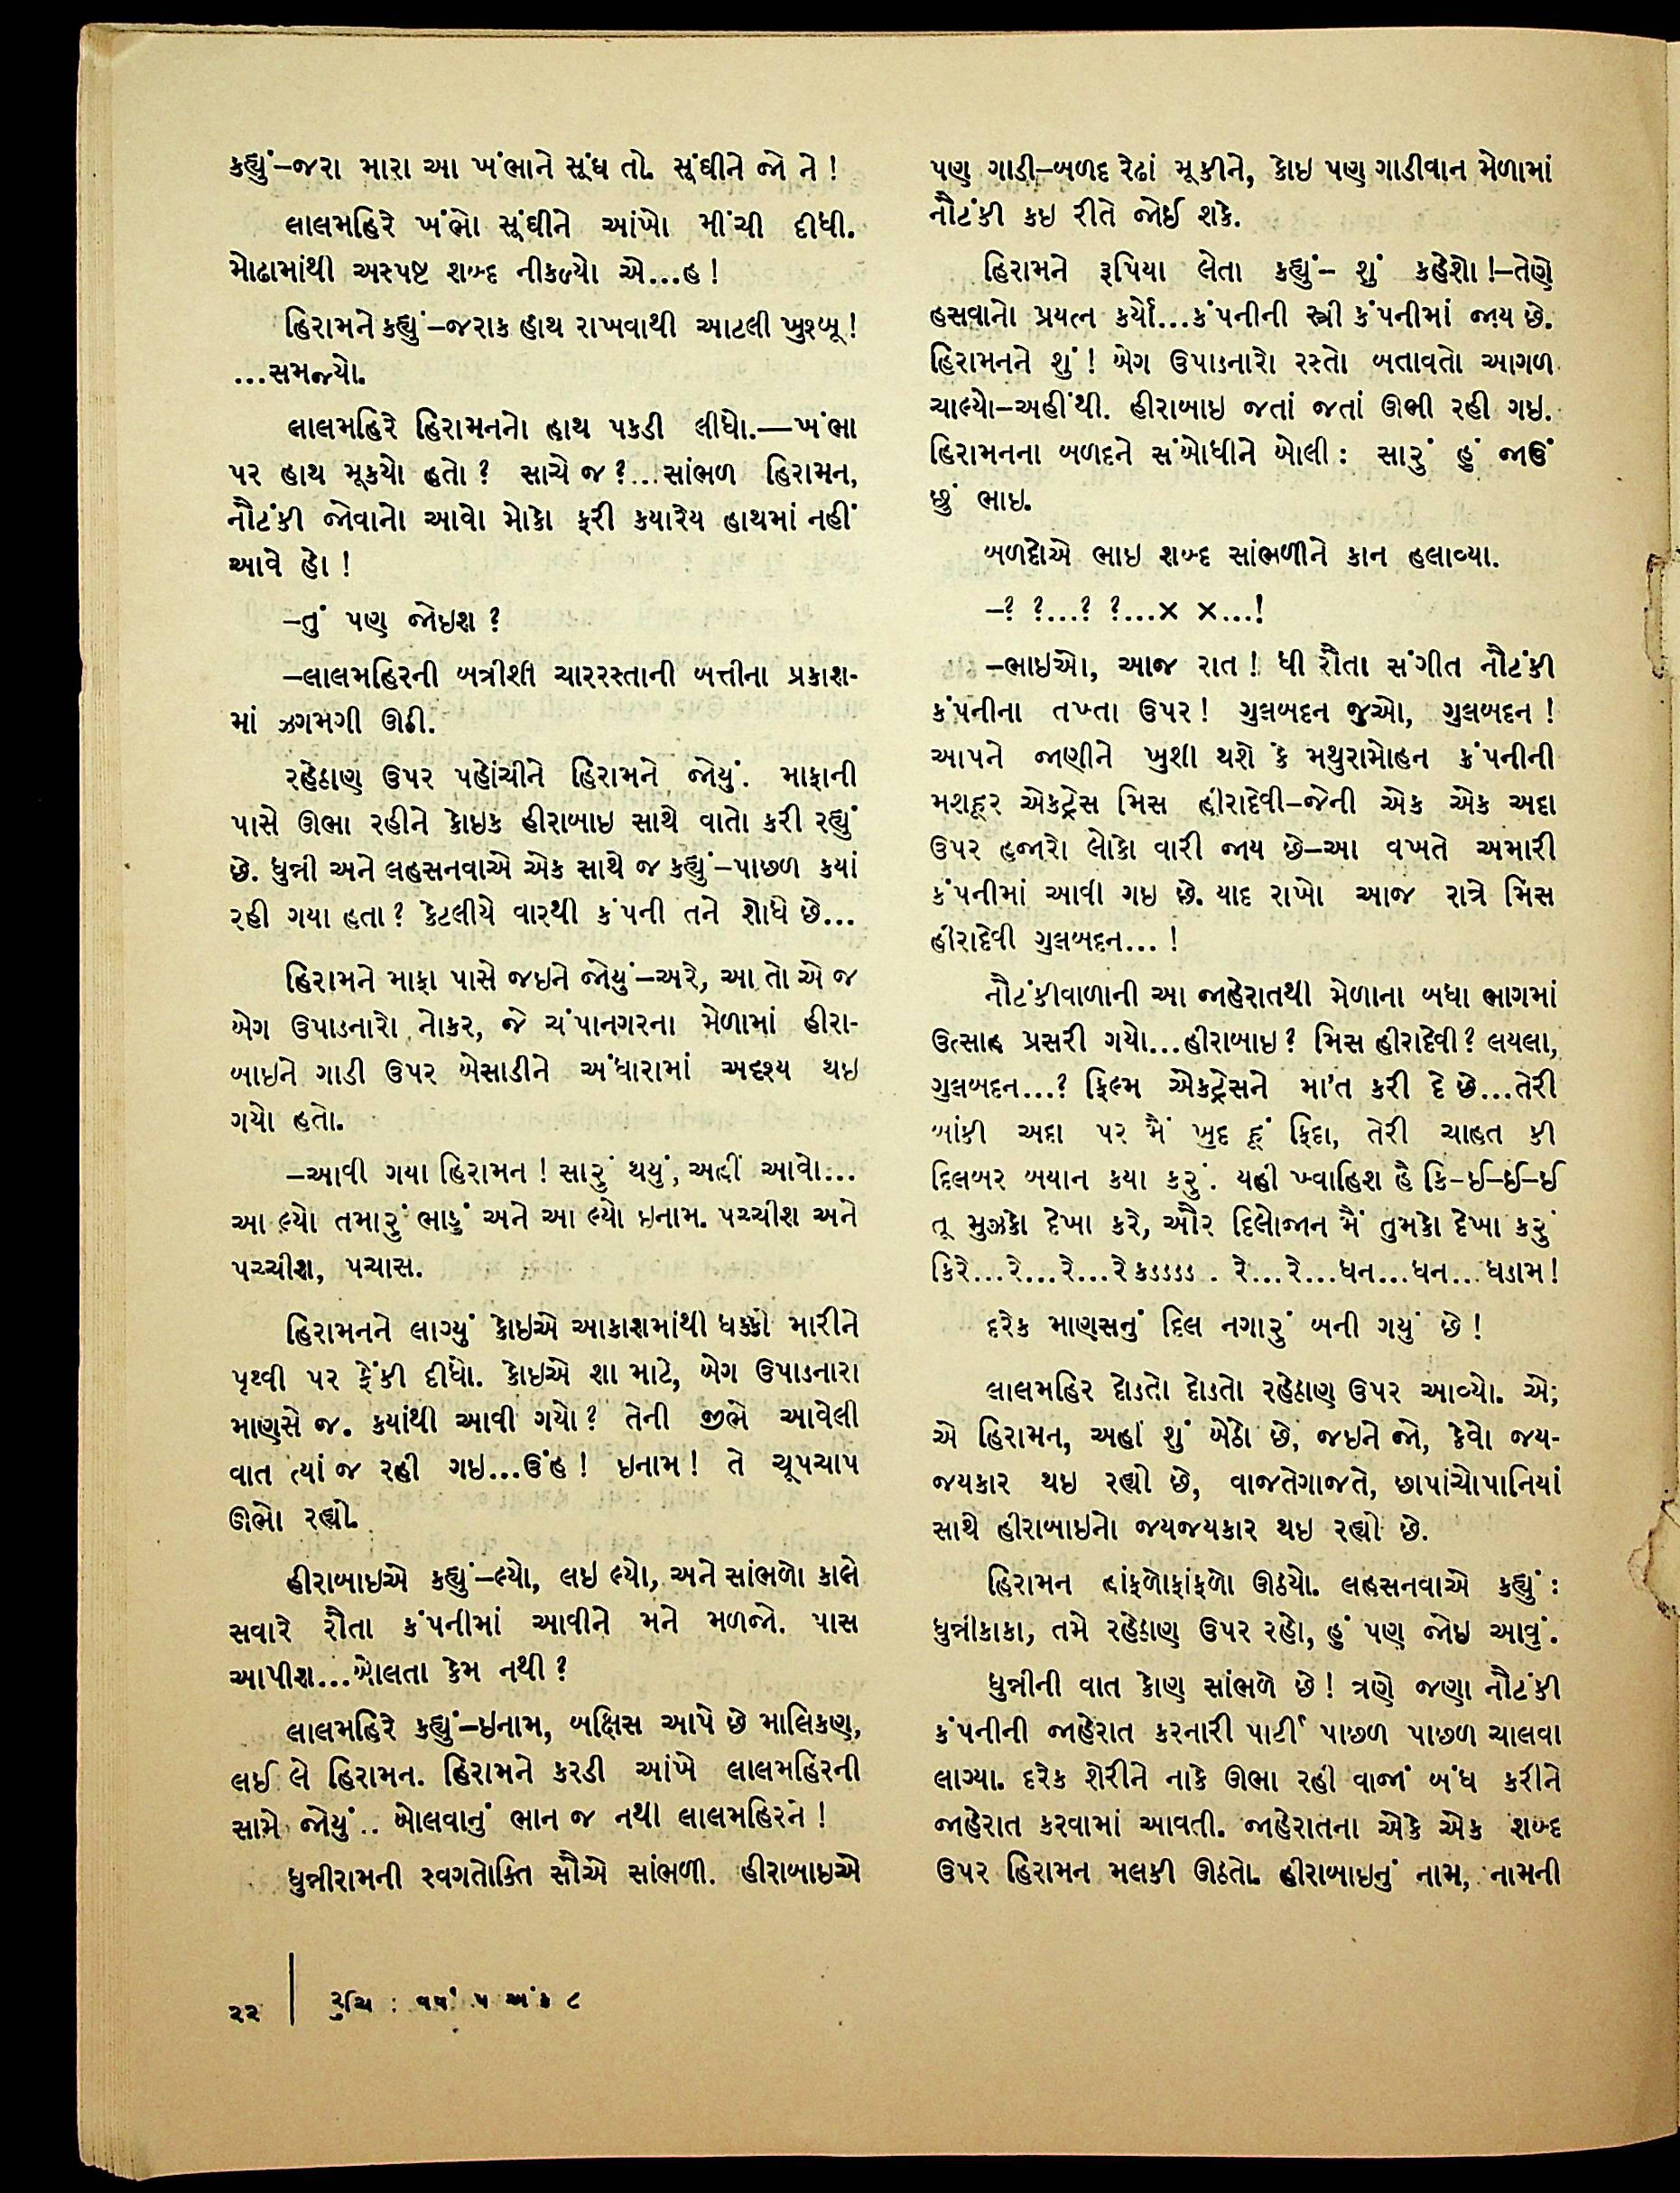 કહ્યું–જરા મારા આ ખંભાને સૂંઘ તો. સૂંઘીને જો ને !
લાલમહિરે ખંભો સૂંઘીને આંખો મીંચી દીધી.
મોઢામાંથી અસ્પષ્ટ શબ્દ નીકળ્યો એ...હ !
હિરામને કહ્યું–જરાક હાથ રાખવાથી આટલી ખુશ્બૂ !
...સમજ્યો.
લાલમહિરે હિરામનનો હાથ પકડી લીધો.—ખંભા
પર હાથ મૂકયો હતો ? સાચે જ ?...સાંભળ હિરામન,
નૌટંકી જોવાનો આવો મોકો ફરી કયારેય હાથમાં નહીં
આવે હો !
–તું પણ જોઇશ ?
–લાલમહિરની બત્રીશી ચારરસ્તાની બત્તીના પ્રકાશ-
માં ઝગમગી ઊઠી.
રહેઠાણ ઉપર પહોંચીને હિરામને જોયું. માફાની
પાસે ઊભા રહીને કોઇક હીરાબાઇ સાથે વાતો કરી રહ્યું
છે. ધુન્ની અને લહસનવાએ એક સાથે જ કહ્યું–પાછળ કયાં
રહી ગયા હતા ? કેટલીયે વારથી કંપની તને શોધે છે...
હિરામને માફા પાસે જઇને જોયું–અરે, આ તો એ જ
બેગ ઉપાડનારો નોકર, જે ચંપાનગરના મેળામાં હીરા-
બાઇને ગાડી ઉપર બેસાડીને અંધારામાં અદૃશ્ય થઇ
ગયો હતો.
–આવી ગયા હિરામન ! સારું થયું, અહીં આવો...
આ લ્યો તમારું ભાડું અને આ લ્યો ઇનામ. પચ્ચીશ અને
પચ્ચીશ, પચાસ.
હિરામનને લાગ્યું કોઇએ આકાશમાંથી ધક્કો મારીને
પૃથ્વી પર ફેંકી દીધો. કોઇએ શા માટે, બેગ ઉપાડનારા
માણસે જ. કયાંથી આવી ગયો ? તેની જીભે આવેલી
વાત ત્યાં જ રહી ગઇ...ઉંહ ! ઇનામ ! તે ચૂપચાપ
ઊભો રહ્યો.
હીરાબાઇએ કહ્યું–લ્યો, લઇ લ્યો, અને સાંભળો કાલે
સવારે રૌતા કંપનીમાં આવીને મને મળજો. પાસ
આપીશ...બોલતા કેમ નથી ?
લાલમહિરે કહ્યું–ઇનામ, બક્ષિસ આપે છે માલિકણ,
લઈ લે હિરામન. હિરામને કરડી આંખે લાલમહિરની
સામે જોયું .. બોલવાનું ભાન જ નથી લાલમહિરને !
ધુન્નીરામની સ્વગતોક્તિ સૌએ સાંભળી. હીરાબાઇએ
પણ ગાડી–બળદ રેઢાં મૂકીને, કોઇ પણ ગાડીવાન મેળામાં
નૌટંકી કઇ રીતે જોઈ શકે.
હિરામને રૂપિયા લેતા કહ્યું– શું કહેશો !–તેણે
હસવાનો પ્રયત્ન કર્યો...કંપનીની સ્ત્રી કંપનીમાં જાય છે.
હિરામનને શું ! બેગ ઉપાડનારો રસ્તો બતાવતો આગળ
ચાલ્યો–અહીંથી. હીરાબાઇ જતાં જતાં ઊભી રહી ગઇ.
હિરામનના બળદને સંબોધીને બોલી : સારું હું જાઉં
છું ભાઇ.
બળદોએ ભાઇ શબ્દ સાંભળીને કાન હલાવ્યા.
–? ?...? ?...× ×...!
–ભાઇઓ, આજ રાત ! ધી રૌતા સંગીત નૌટંકી
કંપનીના તખ્તા ઉપર ! ગુલબદન જુઓ, ગુલબદન !
આપને જાણીને ખુશી થશે કે મથુરામોહન કંપનીની
મશહૂર એકટ્રેસ મિસ હીરાદેવી–જેની એક એક અદા
ઉપર હજારો લોકો વારી જાય છે–આ વખતે અમારી
કંપનીમાં આવી ગઇ છે. યાદ રાખો આજ રાત્રે મિસ
હીરાદેવી ગુલબદન... !
નૌટંકીવાળાની આ જાહેરાતથી મેળાના બધા ભાગમાં
ઉત્સાહ પ્રસરી ગયો...હીરાબાઇ ? મિસ હીરાદેવી ? લયલા,
ગુલબદન...? ફિલ્મ એકટ્રેસને મા'ત કરી દે છે...તેરી
બાંકી અદા પર મૈં ખુદ હૂં ફિદા, તેરી ચાહત કી
દિલબર બયાન કયા કરું. યહી ખ્વાહિશ હૈ કિ-ઈ-ઈ-ઈ
તૂ મુઝકો દેખા કરે, ઔર દિલોજાન મૈં તુમકો દેખા કરું
કિરે...રે...રે...રે કડડડડ . રે...રે...ધન...ધન...ધડામ !
દરેક માણસનું દિલ નગારું બની ગયું છે !
લાલમહિર દોડતો દોડતો રહેઠાણ ઉપર આવ્યો. એ;
એ હિરામન, અહીં શું બેઠો છે, જઇને જો, કેવો જય-
જયકાર થઇ રહ્યો છે, વાજતેગાજતે, છાપાંચોપાનિયાં
સાથે હીરાબાઇનો જયજયકાર થઇ રહ્યો છે.
હિરામન હાંફળોફાંફળો ઊઠયો. લહસનવાએ કહ્યું :
ધુન્નીકાકા, તમે રહેઠાણ ઉપર રહો, હું પણ જોઇ આવું.
ધુન્નીની વાત કોણ સાંભળે છે ! ત્રણે જણા નૌટંકી
કંપનીની જાહેરાત કરનારી પાર્ટી પાછળ પાછળ ચાલવા
લાગ્યા. દરેક શેરીને નાકે ઊભા રહી વાજાં બંધ કરીને
જાહેરાત કરવામાં આવતી. જાહેરાતના એકે એક શબ્દ
ઉપર હિરામન મલકી ઊઠતો. હીરાબાઇનું નામ, નામની
૨૨ | રુચિ : વર્ષ ૫ અંક ૮